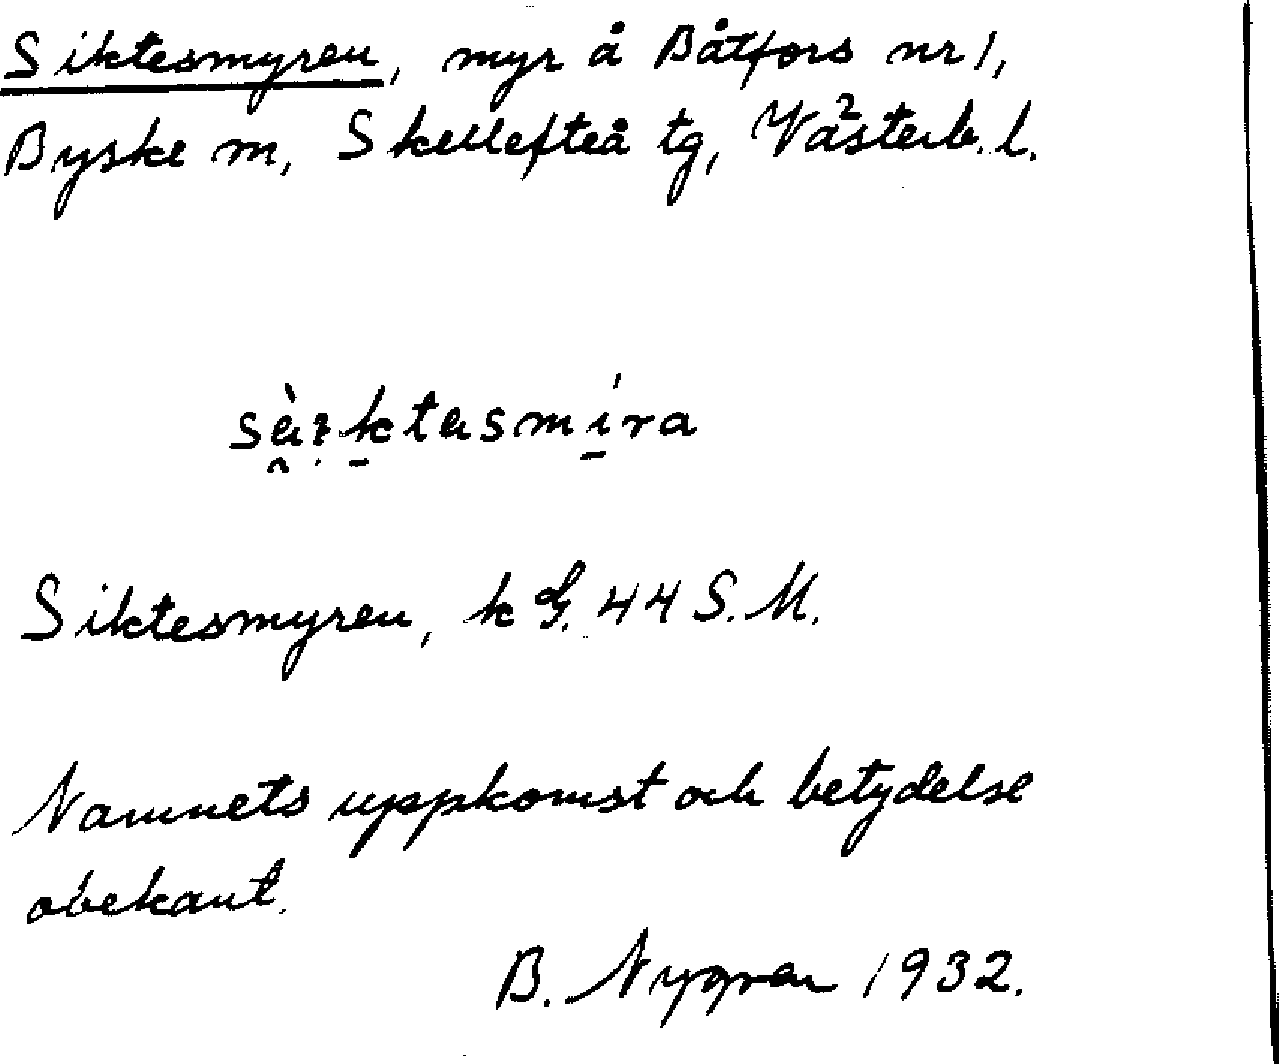 Siktesmyren, myr å Båtfors nr 1,
Byske sn, Skellefteå tg, Västerb. l.
Siktesmyren, k G. 44 S.M.
Namnets uppkomst och betydelse
obekant.
B. Nygren 1932.